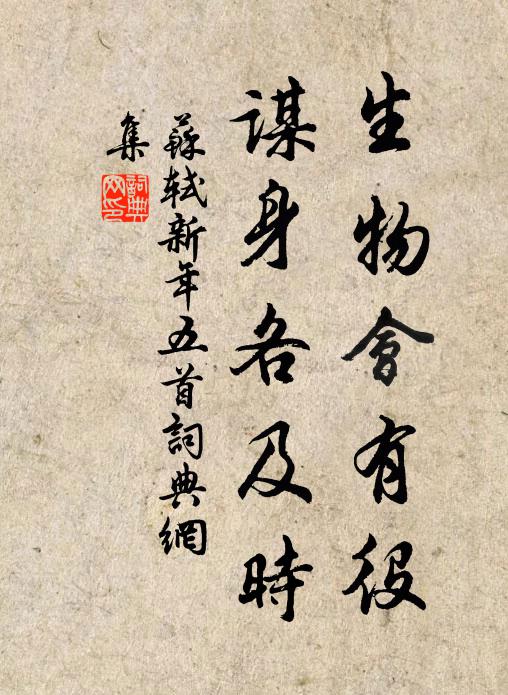 生物會有役
謀身各及時
蘇軾新年五首詞典網
集
詞典
网印